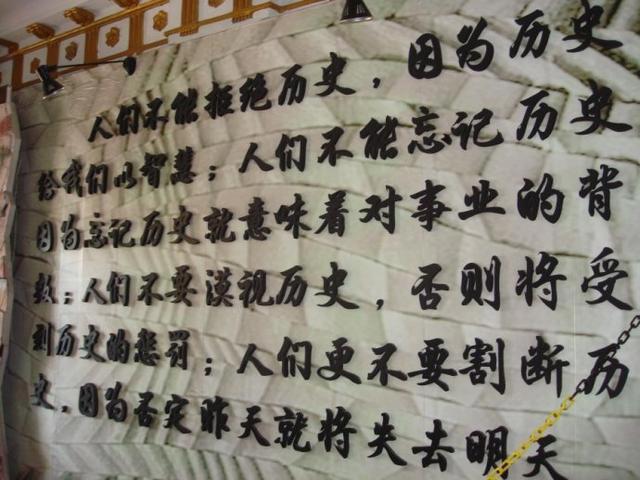 人们不能拒绝历史，因为历史
给我们以智慧；人们不能忘记历史
因为忘记历史就意味着对事业的背
叛；人们不要漠视历史，否则将受
到历史的惩罚；人们更不要割断历
史，因为否定昨天就将失去明天